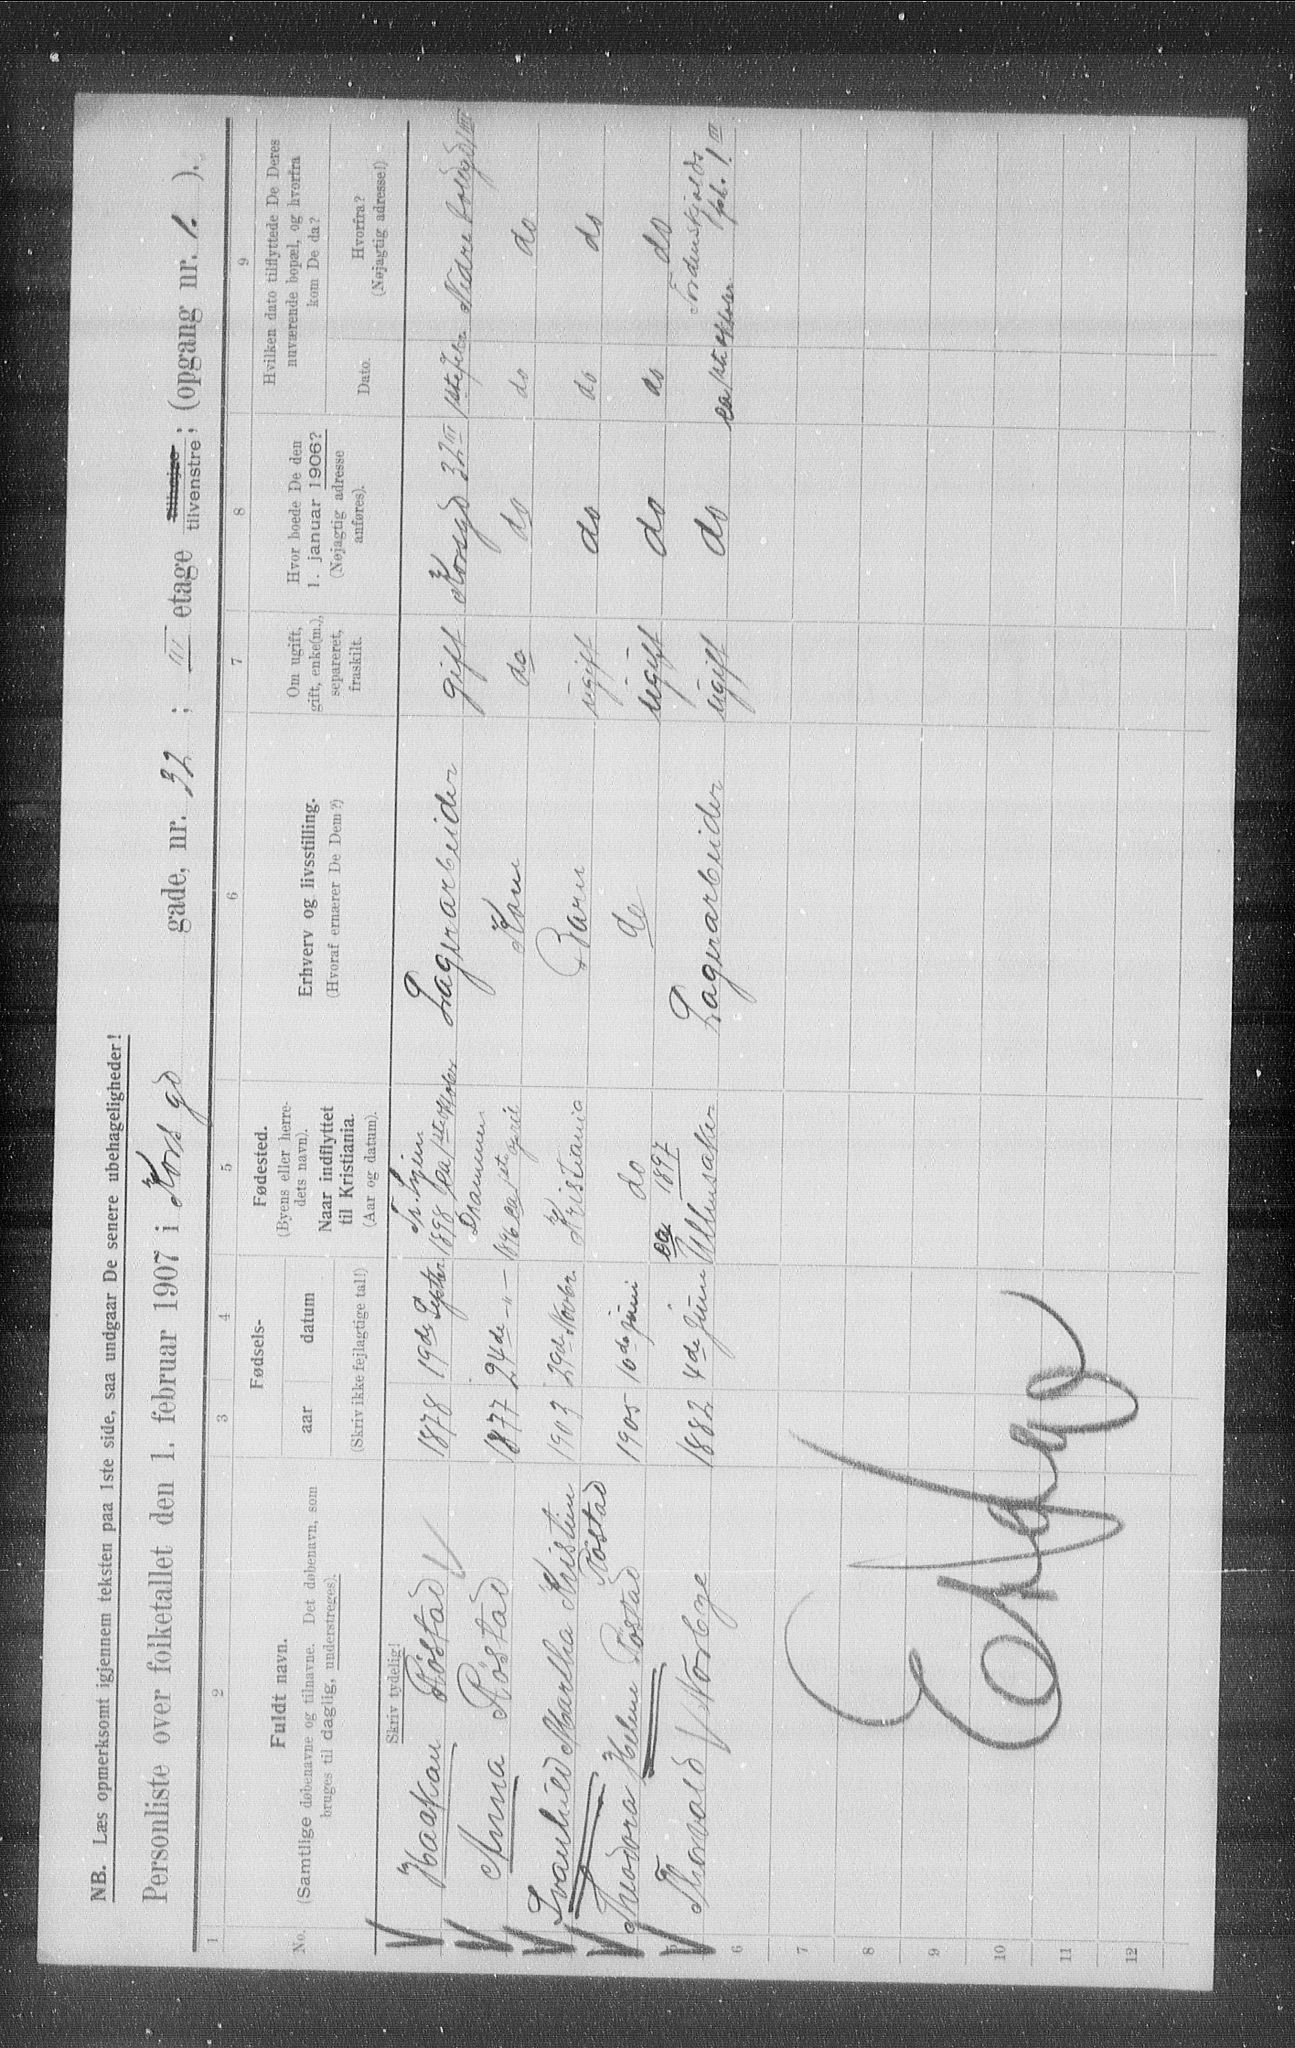 NB. Læs opmerksomt igjennem teksten paa 1ste side, saa undgaar De senere ubehageligheder!
Personliste over folketallet den 1. februar 1907 i Kors gd gade, nr. 32 ; III etage tilhøjre tilvenstre ; (opgang nr. 1. ).
1 2 3 4 5 6 7 8 9
No. Fuldt navn.
(Samtlige døbenavne og tilnavne. Det døbenavn, som
bruges til daglig, understreges).
Skriv tydelig!
Fødsels-
aar datum
(Skriv ikke fejlagtige tal!)
Fødested.
(Byens eller herre-
dets navn).
Naar indflyttet
til Kristiania.
(Aar og datum).
Erhverv og livsstilling.
(Hvoraf ernærer De Dem?)
Om ugift,
gift, enke(m.),
separeret,
fraskilt.
Hvor boede De den
1. januar 1906?
(Nøjagtig adresse
anføres).
Hvilken dato tilflyttede De Deres
nuværende bopæl, og hvorfra
kom De da?
Dato.
Hvorfra?
(Nøjagtig adresse!)
Haakan Røstad 1878 19de Septbr. Tr.hjem 1898 ca 1ste Oktober Lagerarbeider gift Korsgd 32 III 1ste Nedre
Anna Røstad 1877 24de -"- Drammen 1896 ca 1ste april Kone do do do do
Svanhild Martha Kristine Røstad 1903 29de Novbr. Kristiania Barn ugift do do do
Theodora Helene Røstad 1905 10de juni do do ugift do do do
Thorvald Norbye 1882 4de juni ca 1897 Ullensaker Lagerarbeider ugift do ca 1ste oktober Tordenskjolds pl. 1 III
6
7
8
9
10
11
12